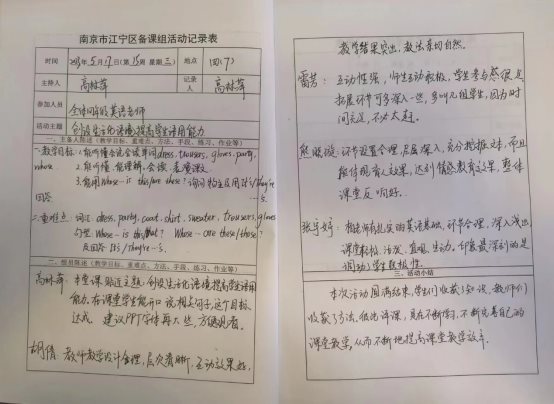 南京市江宁区备课组活动记录表
时间 2023年5月17日(第15周 星期三) 地点 四(7)
主持人 高林萍 记录人 高林萍
参加人员 全体四年级英语老师
活动主题 创设生活化语境,提高学生语用能力
一、主备人陈述(教学目标、重难点、方法、手段、练习、作业等)
一.教学目标:1.能听懂会说会读单词dress, trousers, gloves, party,
whose
2.能听懂,能理解,会读
3.能用Whose… is this/are these? 询问物主及用It's/They're
回答 …'s.
二.重难点: 词汇: dress, party, coat, shirt, sweater, trousers, gloves
句型: Whose… is this/that? Whose… are these/those?
及回答 It's/They're …'s.
二、组员陈述(教学目标、重难点、方法、手段、练习、作业等)
高林萍: 本堂课贴近主题,创设生活化语境提高学生语用
能力,在课堂学生能开口说相关句子,这个目标
达成。建议PPT字体再大些,方便观看。
胡倩: 教师教学设计合理,层次清晰,互动效果好,
教学结果突出,教法亲切自然。
雷芳: 互动性强,师生互动积极,学生参与感很足
拓展环节可多深入一些,多叫几组学生,因为时
间充足,不必太赶。
环节设置合理,层层深入,充分挖掘文本,而且
能体现育人效果,达到情感教育效果,整体
课堂反响好。
老师有扎实的英语基础,环节合理,深入浅出
课堂轻松、活泼、直观、生动,印象最深刻的是
调动了学生积极性。
三、活动小结
本次活动圆满结束,学生们收获了知识,教师们
收获了方法,

不断学习,不断完善自己的
课堂教学,从而不断地提高课堂教学效率。